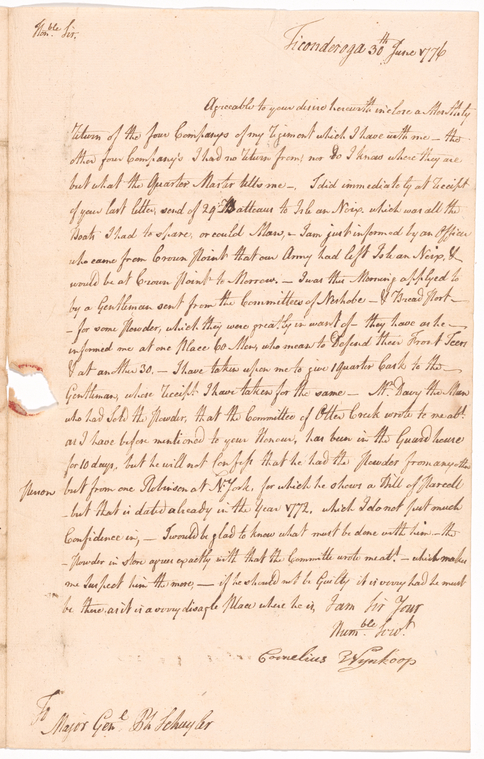 Hon:ble Sir.
Ticonderoga 30th June 1776
Agreeable to your desire herewith inclose a Monthly
Return of the four Companys of my Regiment which I have with me – the
other four Company's I had no return from, nor do I know where they are
but what the Quarter Master tells me –. I did immediately at Receipt
of your last letter, send of 29 Batteaus to Isle an Noix, which was all the
Boats I had to spare, or could Man, – I am just informed by an Officer
who came from Crown Point that our Army had left Isle an Noix, &
would be at Crown Point to Morrow. – I was this Morning applyed to
by a Gentleman sent from the Committees of Neshobe – & Bread Port –
– for some Powder, which they were greatly in want of – they have as he –
informed me at one Place 60 Men, who mean to Defend their Front
& at another 30. – I have taken upon me to give 1 Quarter Cask to the –
Gentleman, whose Receipt I have taken for the same – Mr. Davy the Man
who had Sold the Powder, that the Committee of Otter Creek wrote to me abt.
as I have before mentioned to your Honour, has been in the Guard house
for 10 days, but he will not Confess that he had the Powder from any other
person
but from one Robinson at N: York, for which he shows a Bill of Parcell
– but that is dated already in the Year 1772, which I do not put much
Confidence in, – I would be glad to know what must be done with him – the
– Powder in store agrees exactly with that the Committe wrote me abt. – which makes
me Suspect him the more, – if he should not be Guilty it is very hard he must
be there, as it is a very disagle Place where he is, I am Sir Your
Humble Servt.
Cornelius Wynkoop
To
Major Genl. Ph Schuyler